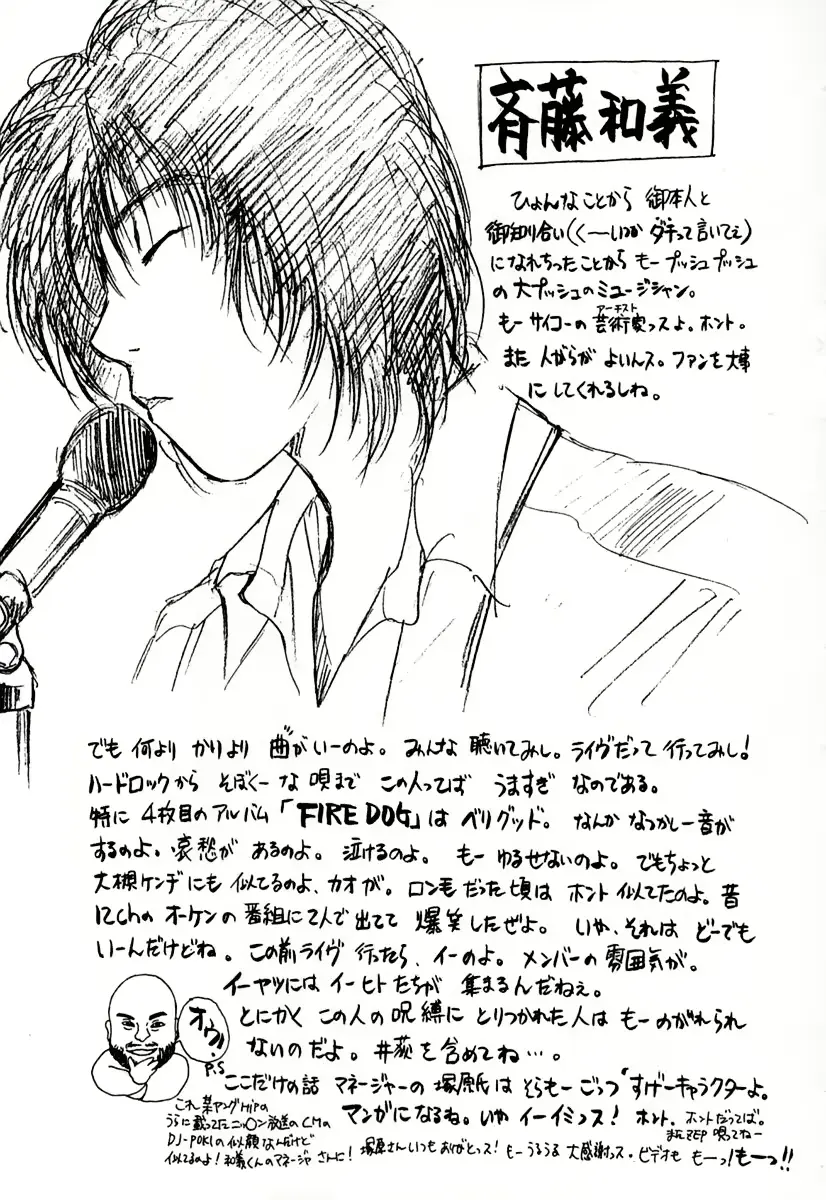 斉藤和義
ひょんなことから 御本人と
御知り合い(く〜いつか ダチって言いてぇ)
になれちったことから もー プッシュプッシュ
の大プッシュのミュージシャン。
もー サイコーの 芸術家ッスよ。ホント。
アーチスト
また 人がらが よいんス。ファンを大事
にしてくれるしね。
でも 何より かにより 曲がいーのよ。みんな 聴いてみし。ライヴだって 行ってみし!
ハードロックから そぼくーな 唄まで この人ってば うますぎ なのである。
特に 4枚目のアルバム「FIRE DOG」は ベリグッド。なんか なつかしー音が
するのよ。哀愁が あるのよ。泣けるのよ。もー ゆるせないのよ。でもちょっと
大槻ケンヂにも 似てるのよ、カオが。ロン毛だった頃は ホント 似てたのよ。昔
12chの オーケンの 番組に 2人で 出てて 爆笑したぜよ。いや、それは どーでも
いーんだけどね。この前ライヴ 行ったら、イーのよ。メンバーの 雰囲気が。
イーヤツには イーヒトたちが 集まるんだねぇ。
とにかく この人の呪縛に とりつかれた人は もーのがれられ
ないのだよ。井荻を含めてね…。
オウ!!
P.S
ここだけの話 マネージャーの 塚原氏は そらもー ごっつ すげーキャラクターよ。
マンガになるね。いや イーイミっス! ホント。ホントだってば。
また ZEP 唄ってねー
これ 某ヤングHipの
うらに載ってたニッ〇ン放送のCMの
DJ-POKIの似顔なんだけど
似てるのよ!和義くんのマネージャさんに!
塚原さんいつもありがとっス! もーうるうる 大感謝っス・ビデオも もーっ!もーっ!!